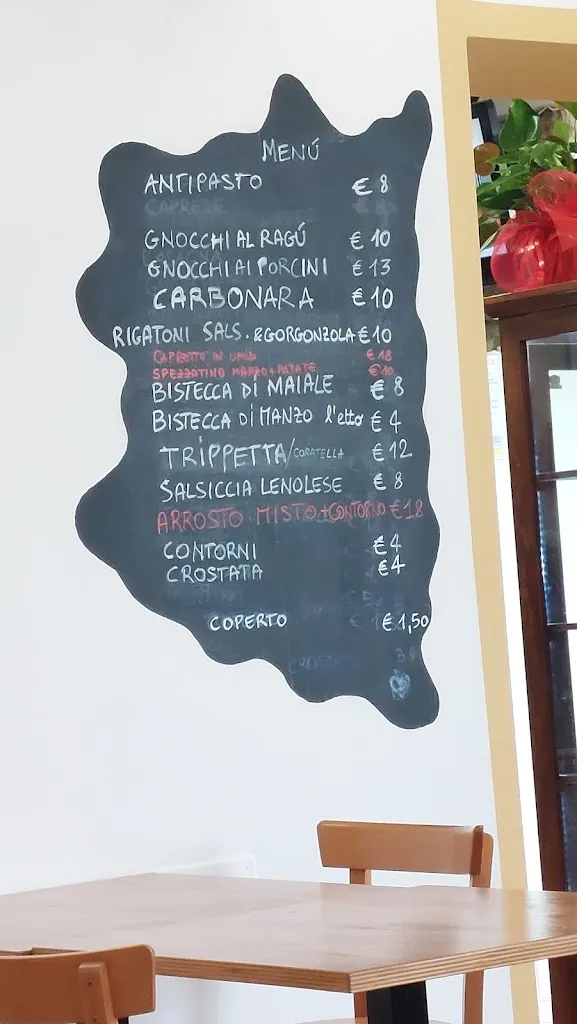 MENÚ
ANTIPASTO € 8
CAPRESE
GNOCCHI AL RAGÚ € 10
GNOCCHI AI PORCINI € 13
CARBONARA € 10
RIGATONI SALS. & GORGONZOLA € 10
CAPRETTO IN UMIDO € 18
SPEZZATINO MANZO + PATATE € 10
BISTECCA DI MAIALE € 8
BISTECCA DI MANZO l'etto € 4
TRIPPETTA/CORATELLA € 12
SALSICCIA LENOLESE € 8
ARROSTO MISTO + CONTORNO € 18
CONTORNI € 4
CROSTATA € 4
COPERTO € 1,50